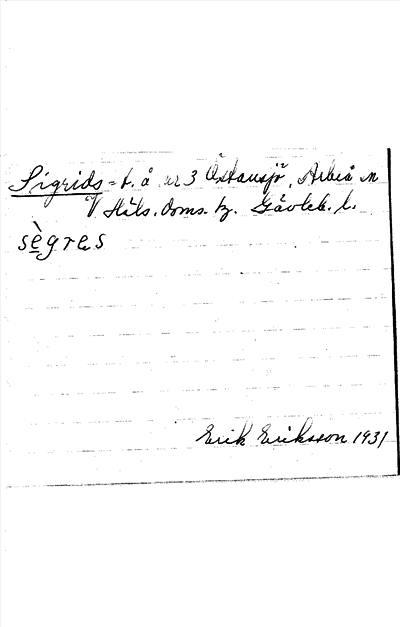 Sigrids = t. å nr 3 Östansjö, Arbrå sn
V Häls. doms. tg. Gävleb. l.
sègres
Erik Eriksson 1931